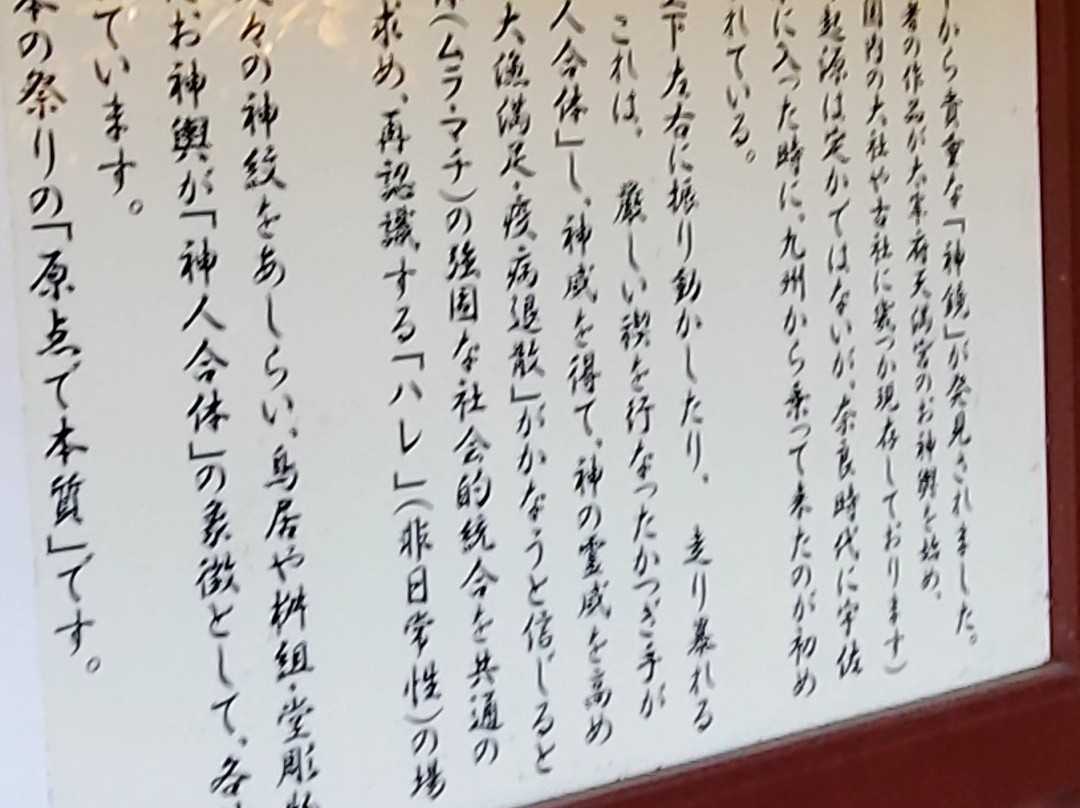 から貴重な「神鏡」が発見されました。
者の作品が太宰府天満宮のお神輿を始め、
国内の大社や古社に幾つか現存しております)
起源は定かではないが、奈良時代に宇佐
に入った時に、九州から乗って来たのが初め
れている。
下左右に振り動かしたり、走り暴れる
これは、厳しい禊を行なったかつぎ手が
人合体」し、神威を得て、神の霊威を高め
大漁満足・疫病退散」がかなうと信じると
(ムラ・マチ)の強固な社会的統合を共通の
求め、再認識する「ハレ」(非日常性)の場
々の神紋をあしらい、鳥居や桝組・堂彫
お神輿が「神人合体」の象徴として、各
ています。
本の祭りの「原点で本質」です。